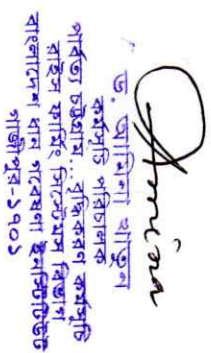 Amina
ড. আমিনা খাতুন
কর্মসূচি পরিচালক
পার্বত্য চট্টগ্রাম... বৃদ্ধিকরণ কর্মসূচি
রাইস ফার্মিং সিস্টেমস বিভাগ
বাংলাদেশ ধান গবেষণা ইনস্টিটিউট
গাজীপুর-১৭০১